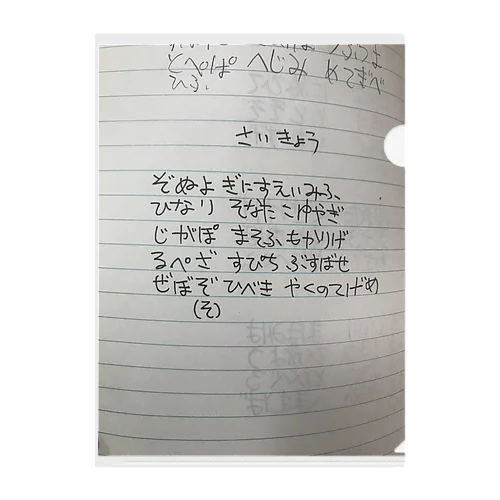 とぺぱ へじみ めてぎべ
ひふ.
さいきょう
ぞぬよ ぎにすえいみふ、
ひなり そなたこゆやぎ
じがぽ まそふもかりげ
るぺざ すぴちぶすばせ
ぜぼぞ ひべき やくのてげめ
(そ)